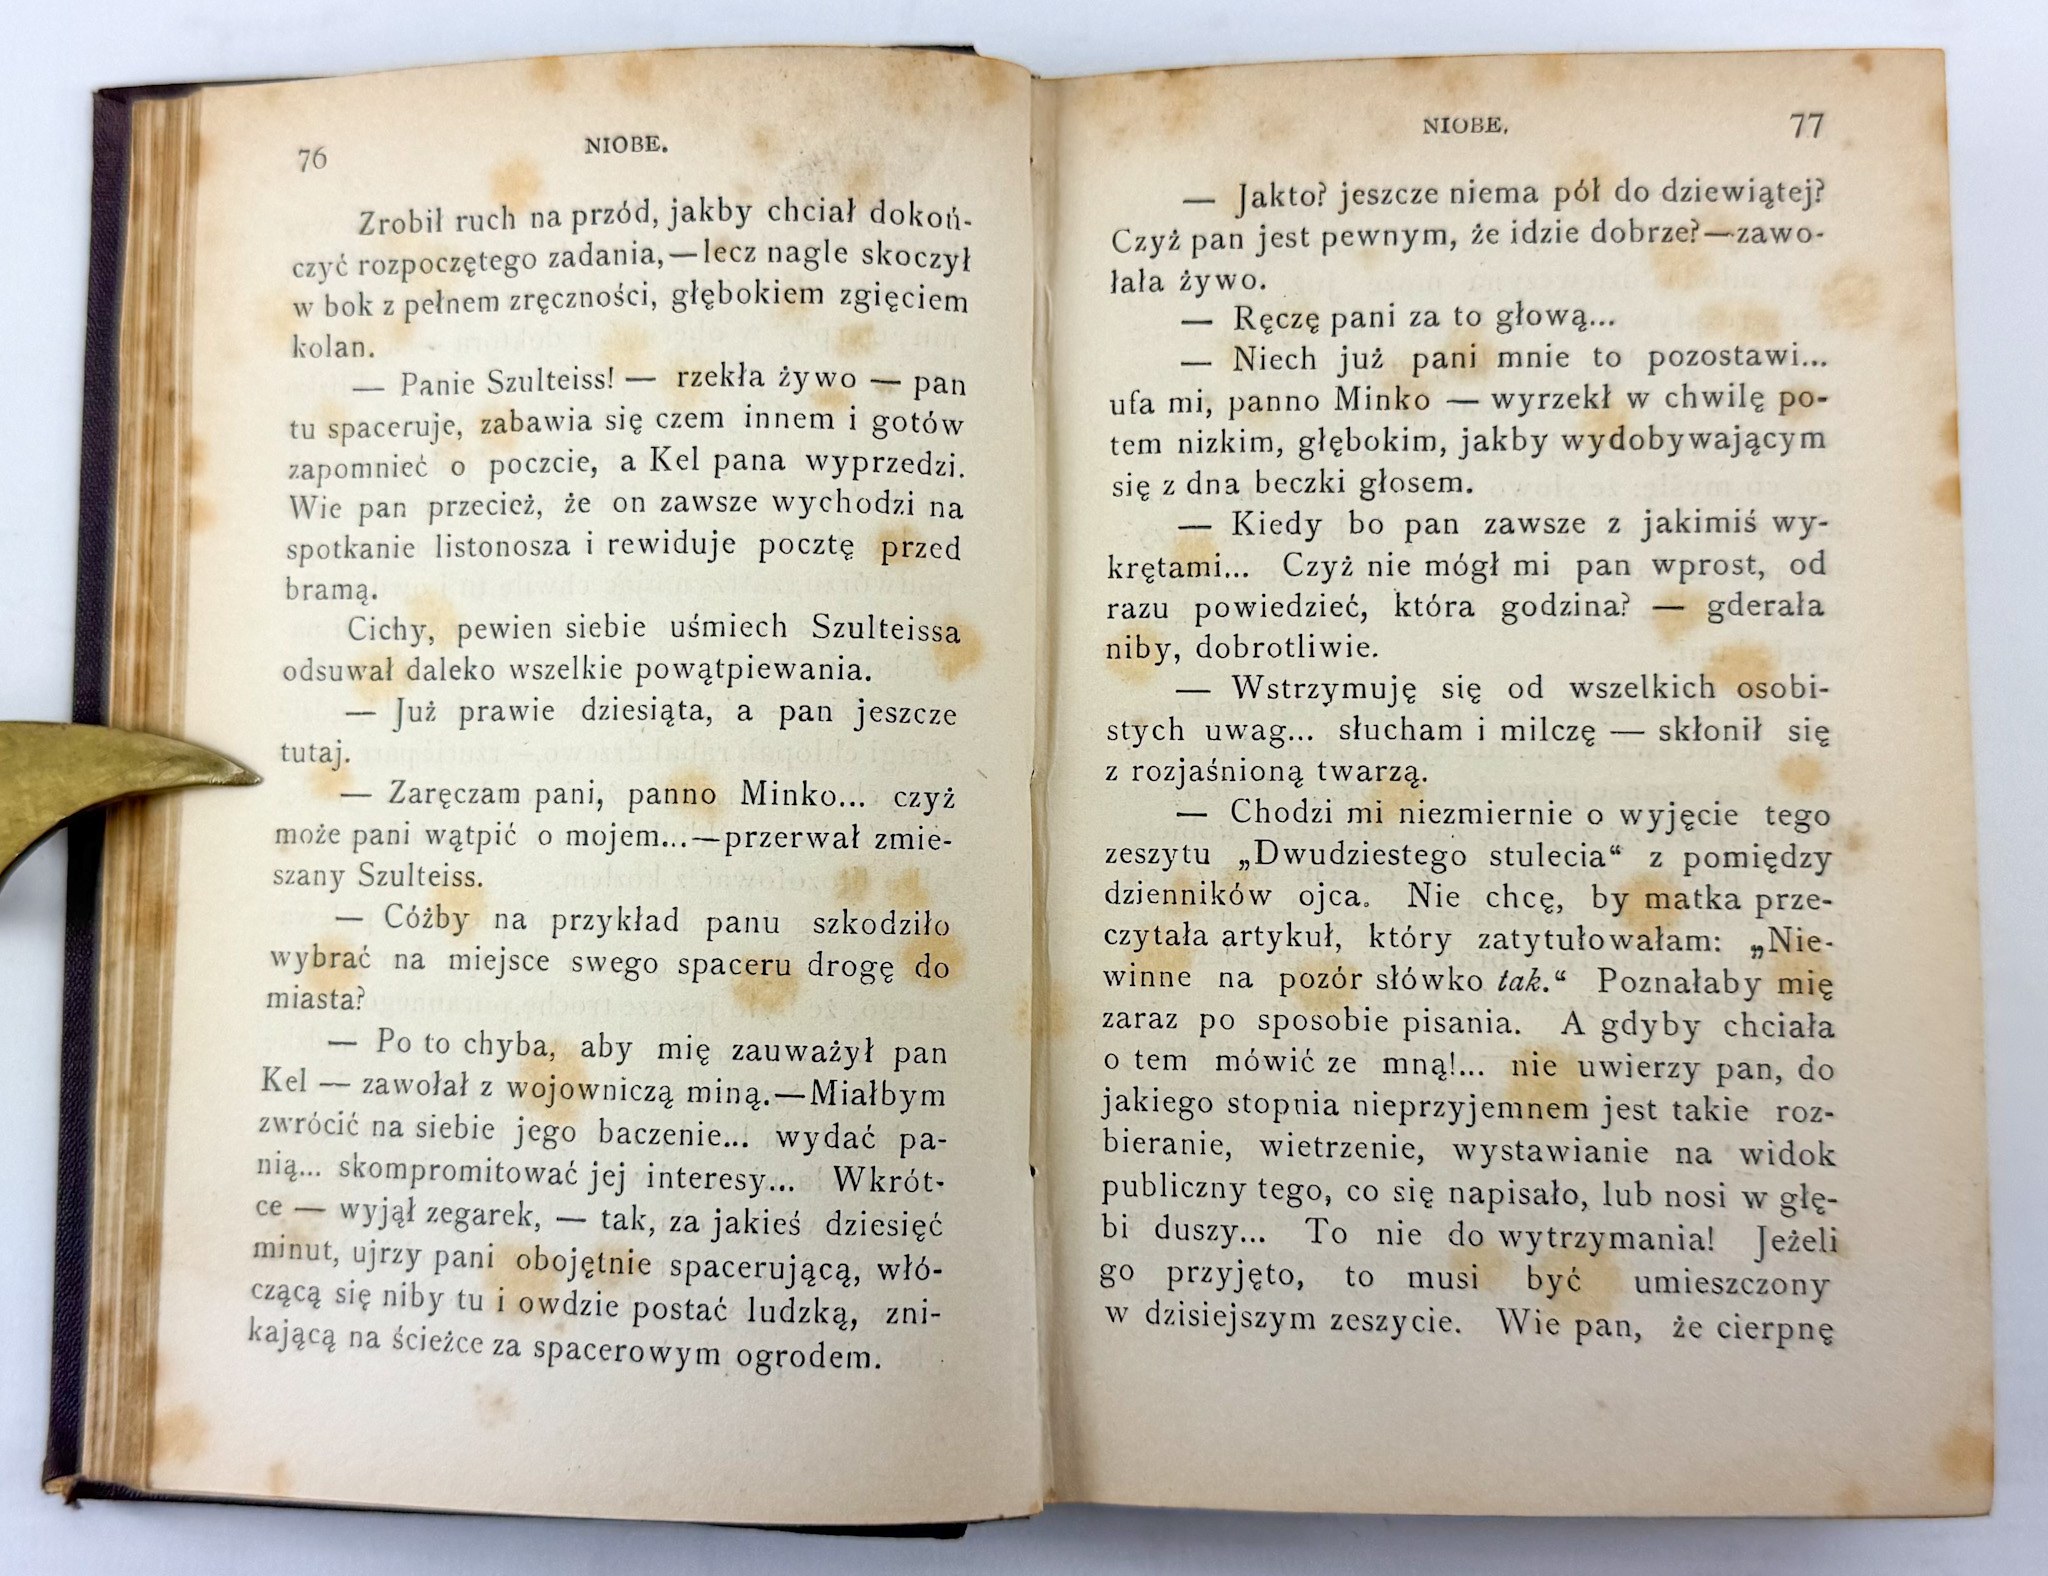 76
NIOBE.
Zrobił ruch na przód, jakby chciał dokoń-
czyć rozpoczętego zadania,—lecz nagle skoczył
w bok z pełnem zręczności, głębokiem zgięciem
kolan.
— Panie Szulteiss! — rzekła żywo — pan
tu spaceruje, zabawia się czem innem i gotów
zapomnieć o poczcie, a Kel pana wyprzedzi.
Wie pan przecież, że on zawsze wychodzi na
spotkanie listonosza i rewiduje pocztę przed
bramą.
Cichy, pewien siebie uśmiech Szulteissa
odsuwał daleko wszelkie powątpiewania.
— Już prawie dziesiąta, a pan jeszcze
tutaj.
— Zaręczam pani, panno Minko... czyż
może pani wątpić o mojem...—przerwał zmie-
szany Szulteiss.
— Cóżby na przykład panu szkodziło
wybrać na miejsce swego spaceru drogę do
miasta?
— Po to chyba, aby mię zauważył pan
Kel — zawołał z wojowniczą miną.—Miałbym
zwrócić na siebie jego baczenie... wydać pa-
nią... skompromitować jej interesy... Wkrót-
ce — wyjął zegarek, — tak, za jakieś dziesięć
minut, ujrzy pani obojętnie spacerującą, włó-
czącą się niby tu i owdzie postać ludzką, zni-
kającą na ścieżce za spacerowym ogrodem.
NIOBE.
77
— Jakto? jeszcze niema pół do dziewiątej?
Czyż pan jest pewnym, że idzie dobrze?—zawo-
łała żywo.
— Ręczę pani za to głową...
— Niech już pani mnie to pozostawi...
ufa mi, panno Minko — wyrzekł w chwilę po-
tem nizkim, głębokim, jakby wydobywającym
się z dna beczki głosem.
— Kiedy bo pan zawsze z jakimiś wy-
krętami... Czyż nie mógł mi pan wprost, od
razu powiedzieć, która godzina? — gderała
niby, dobrotliwie.
— Wstrzymuję się od wszelkich osobi-
stych uwag... słucham i milczę — skłonił się
z rozjaśnioną twarzą.
— Chodzi mi niezmiernie o wyjęcie tego
zeszytu „Dwudziestego stulecia“ z pomiędzy
dzienników ojca. Nie chcę, by matka prze-
czytała artykuł, który zatytułowałam: „Nie-
winne na pozór słówko tak.“ Poznałaby mię
zaraz po sposobie pisania. A gdyby chciała
o tem mówić ze mną!... nie uwierzy pan, do
jakiego stopnia nieprzyjemnem jest takie roz-
bieranie, wietrzenie, wystawianie na widok
publiczny tego, co się napisało, lub nosi w głę-
bi duszy... To nie do wytrzymania! Jeżeli
go przyjęto, to musi być umieszczony
w dzisiejszym zeszycie. Wie pan, że cierpnę